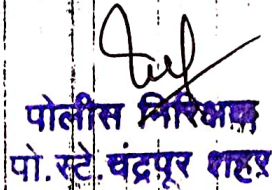 पोलीस निरिक्षक
पो. स्टे. चंद्रपूर शहर